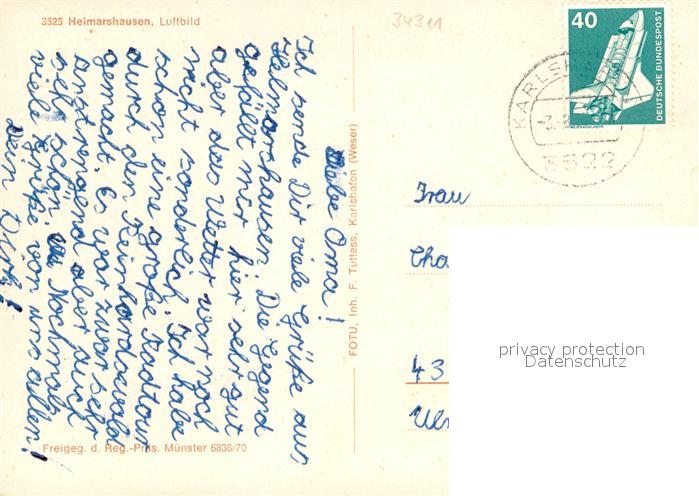 3525 Helmarshausen, Luftbild
34311
Liebe Oma!
Ich sende Dir viele Grüße aus
Helmarshausen. Die Gegend
gefällt mir hier sehr gut
aber das Wetter war noch
nicht sonderlich. Ich habe
schon eine große Radtour
durch den Reinhardswald
gemacht. Es war zwar sehr
anstrengend aber auch
sehr schön. Nochmals
viele Grüße von uns allen!
Dein Dirk!
Freigeg. d. Reg.-Präs. Münster 6836/70
FOTU, Inh. F. Tuttass, Karlshafen (Weser)
40
DEUTSCHE BUNDESPOST
KARLSH
3522
Frau
Cha
43
privacy protection
Datenschutz